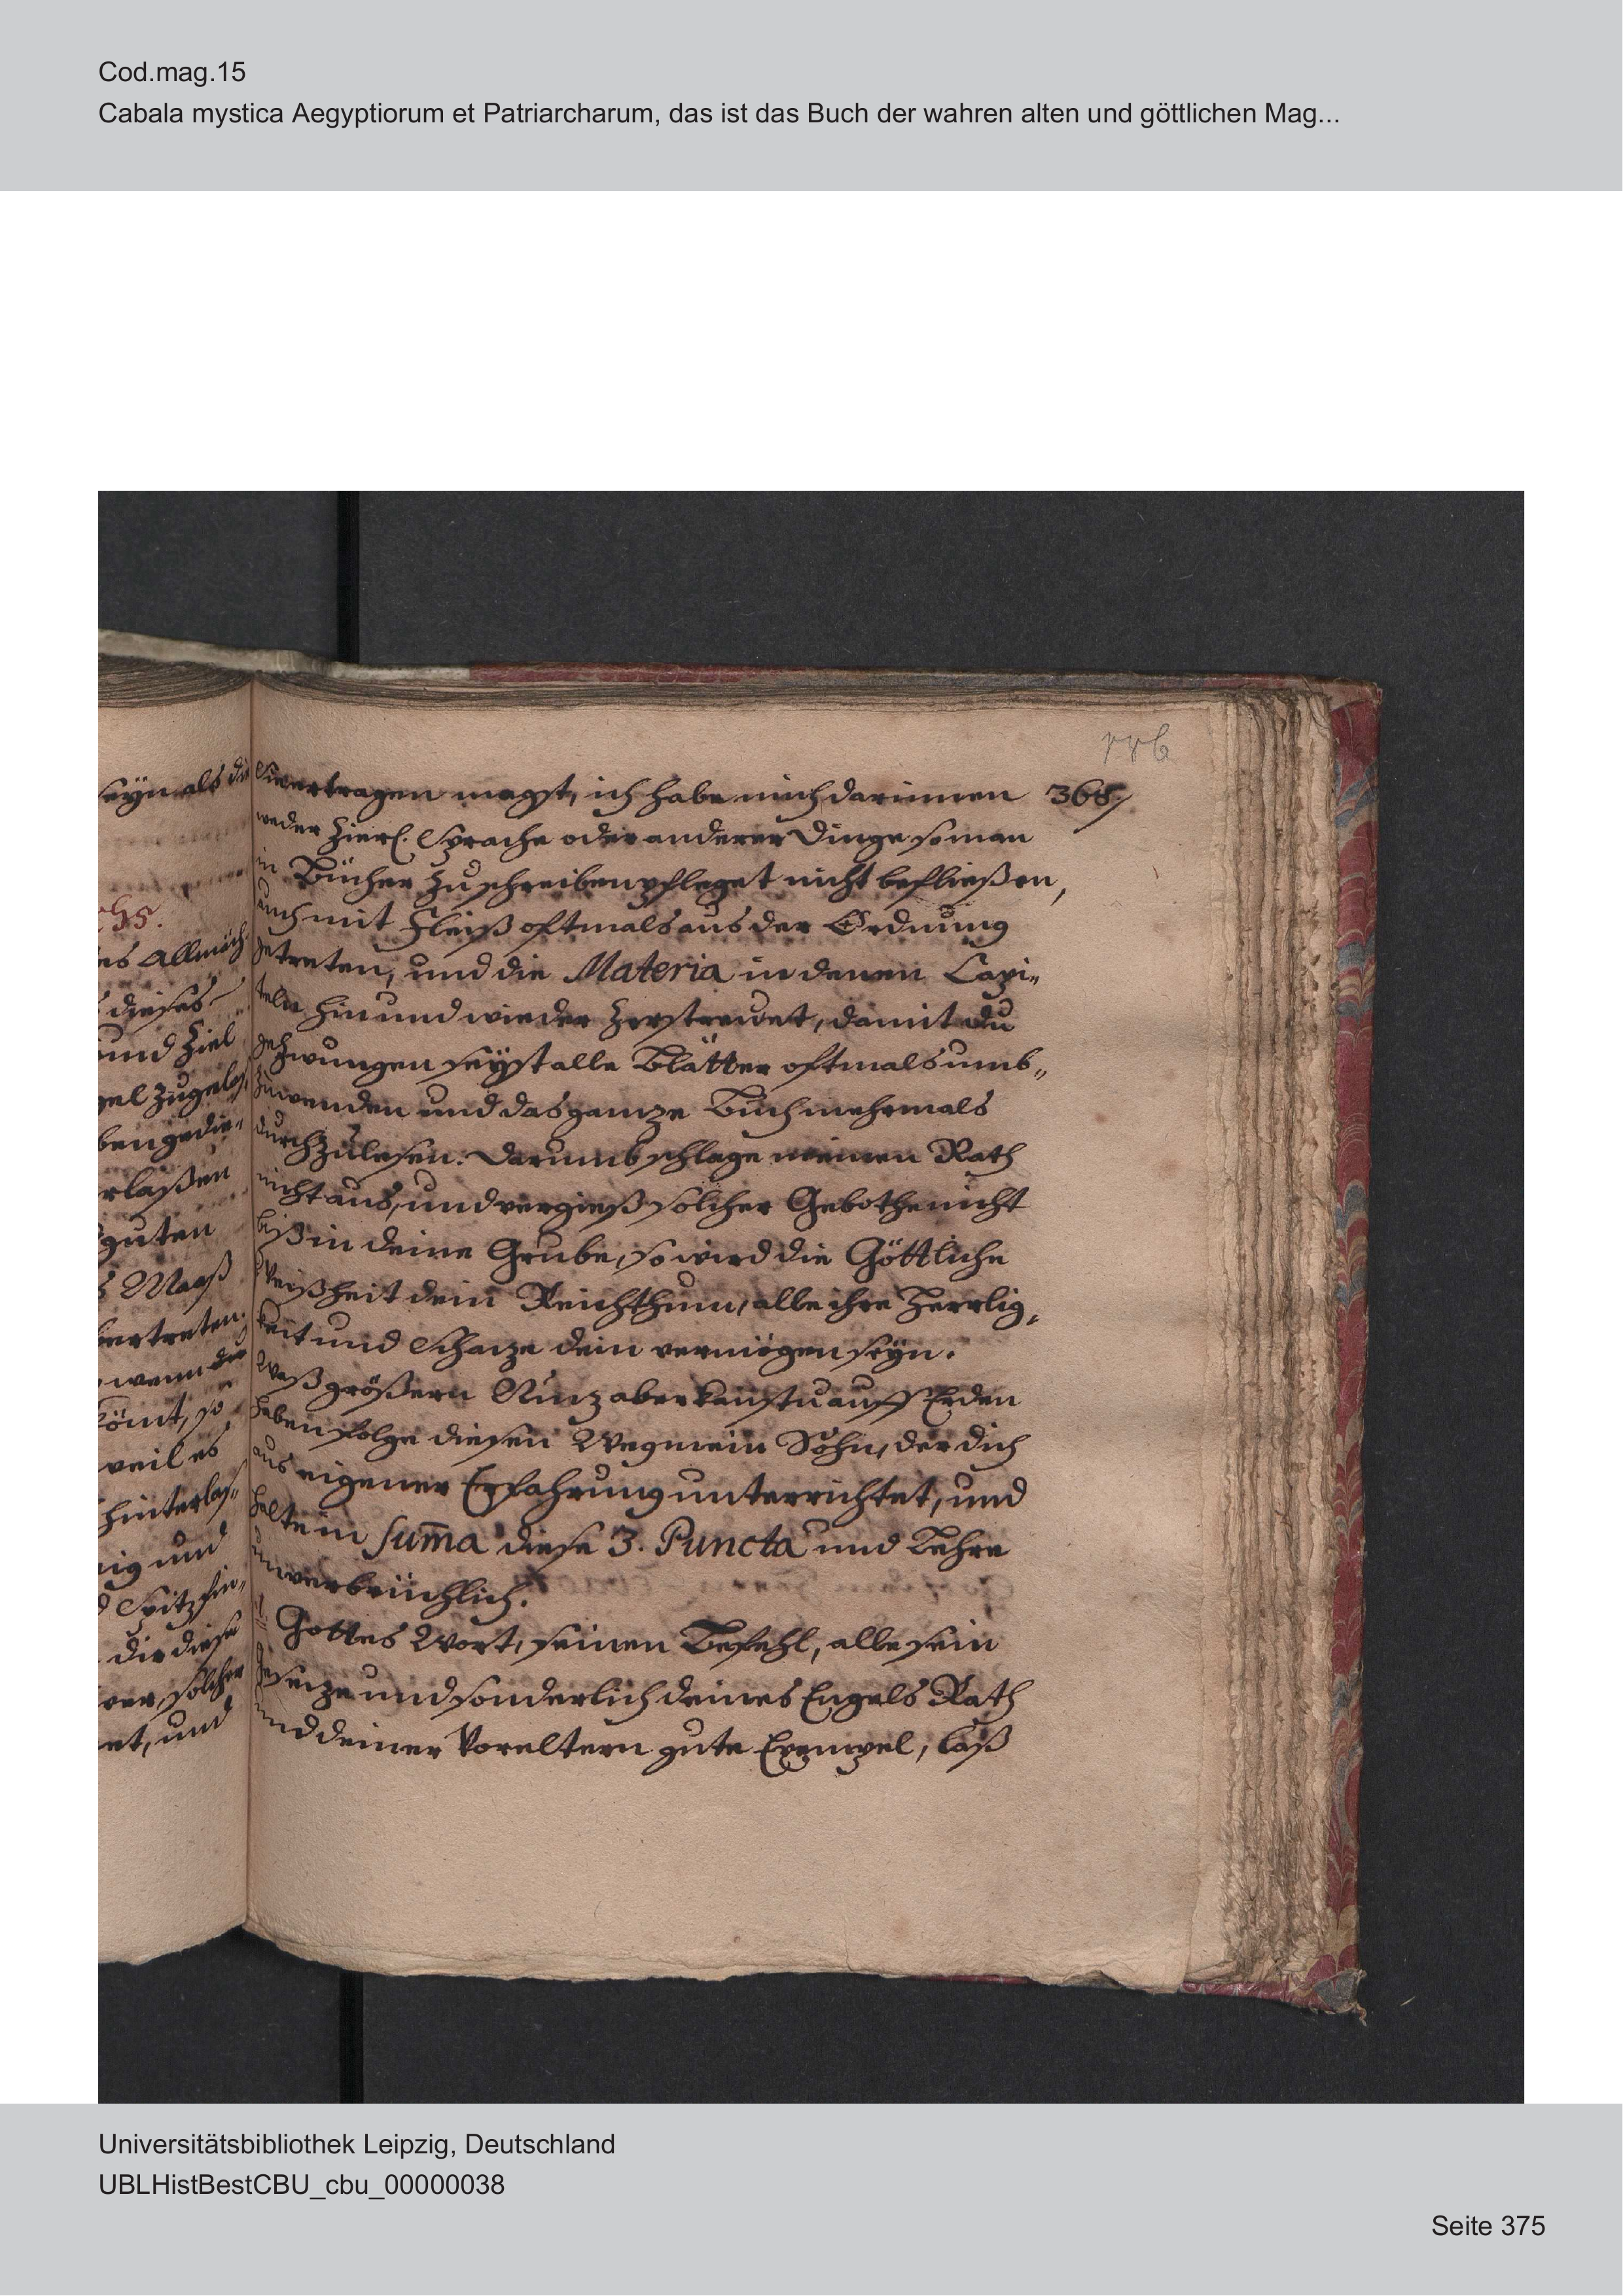 Cod.mag.15
Cabala mystica Aegyptiorum et Patriarcharum, das ist das Buch der wahren alten und göttlichen Mag...
seyn als die
es Allmäch
dieses
und Ziel
ben gedie-
rlaßen
guten
Maaß
wenn die
kömt, so
weil es
hinterlaß,,
nig und
Spitzfin,,
die diese
solcher
et, und
186
368/
vertragen magst, ich habe mich darinnen
weder Zierl. Sprache oder anderer Dinge so man
in Bücher zu schreiben pfleget nicht befließen,
auch mit Fleiß oftmals aus der Ordnung
getreten, und die Materia in denen Capi,,
teln hin und wieder zerstrewet, damit du
gezwungen seyst alle Blätter oftmals umb,,
zuwenden und das ganze Buch mehrmals
durchzulesen. Darumb schlage meinen Rath
nicht aus, und vergieß solcher Gebothe nicht
biß in deine Grube, so wird die Göttliche
Weißheit dein Reichthum, alle ihre Herrlig,
keit und Schaze dein vermögen seyn.
Waß größern Nuz aber kanstu auff Erden
haben folge diesen Weg mein Sohn, der dich
aus eigener Erfahrung unterrichtet, und
halte in sum̄a diese 3. Puncta und Lehre
unverbrüchlich.
1. Gottes Wort, seinen Befehl, alle sein
Geseze und sonderlich deines Engels Rath
und deiner Voreltern gute Exempel, laß
Universitätsbibliothek Leipzig, Deutschland
UBLHistBestCBU_cbu_00000038
Seite 375